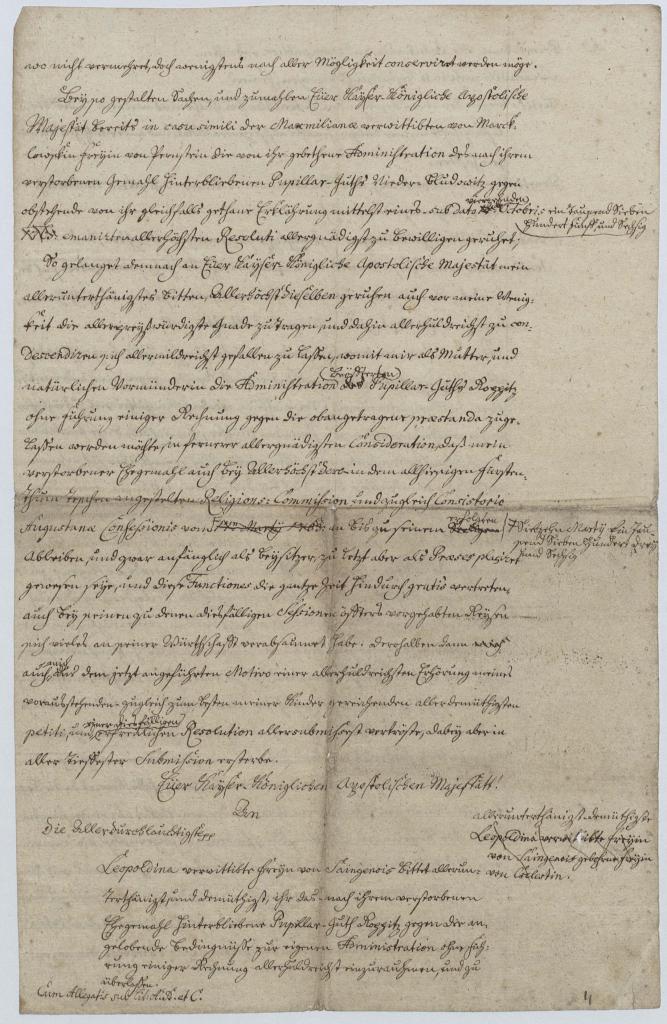 wo nicht vermehret, doch wenigstens nach aller Möglichkeit conservirt werden möge.
Bey so gestalten Sachen, und zumahlen Euer Kayser: Königliche Apostolische
Majestät bereits in casu simili der Maximiliana verwittibten von Marck-
lowskin Freyin von Pernstein die von ihr gebethene Administration des nach ihrem
verstorbenen Gemahl hinterbliebenen Pupillar-Guths Nieder Bludowitz gegen
obstehende von ihr gleichfalls gethane Erklährung mittelst eines sub dato
vierzehenden
Octobris ein Tausend Sieben
Hundert Fünff und Sechzig
emanirten allerhöchsten Resoluti allergnädigst zu bewilligen geruhet;
So gelanget demnach an Euer Kayser: Königliche Apostolische Majestät mein
allerunterthänigstes Bitten, Allerhöchst dieselben geruhen auch vor meine Wenig-
keit die allerpreyßwürdigste Gnade zu tragen, und dahin allerhuldreichst zu con-
descendiren sich allermildreichst gefallen zu lassen, womit mir als Mutter, und
natürlichen Vormünderin die Administration des Pupillar-Guths Roppitz
ohne Führung einiger Rechnung gegen die obangetragene praestanda zuge-
lassen werden möchte, in fernerer allergnädigsten Consideration, daß mein
verstorbener Ehegemahl auch bey Allerhöchst Dero in dem allhiesigen Fürsten-
thum Teschen angestelten Religions-Commission und zugleich Consistorio
Augustanae Confessionis von
an bis zu seinem
erfolgten
Siebzehn Martÿ Ein Tau-
send Sieben Hundert Drey
und Sechzig
Ableiben, und zwar anfänglich als Beysitzer, zu letzt aber als Praeses
gewesen seye, und diese Functiones die gantze Zeit hindurch gratis vertreten,
auch bey seinen zu denen diesfälligen Sessionen öffters vorgehabten Reysen
sich vieles an seiner Würthschafft verabsaumet habe. Derohalben dann
auch aus dem jetzt angeführten Motivo einer allerhuldreichsten Erhörung meines
vorausstehenden zugleich zum besten meiner Kinder gereichenden allerdemüthigsten
petiti, und
einer diesfälligen
erfreulichen Resolution allersubmissest vertröste, dabey aber in
aller tieffester Submission ersterbe.
Euer Kayser: Königlichen Apostolischen Majestätt!
An
Die Allerdurchlauchtigste
allerunterthänigst demüthigste
Leopoldina verwittibte Freyin
von Saingenois gebohrne Freyin
von Coelestin.
Leopoldina verwittibte Freyin von Saingenois bittet allerun-
terthänigst, und demüthigst, ihr das nach ihrem verstorbenen
Ehegemahl hinterbliebene Pupillar-Guth Roppitz gegen die an-
gelobende Bedingnüsse zur eigenen Administration ohne Füh-
rung einiger Rechnung allerhuldreichst einzuraumen, und zu
überlassen.
Cum Allegatis sub et C.